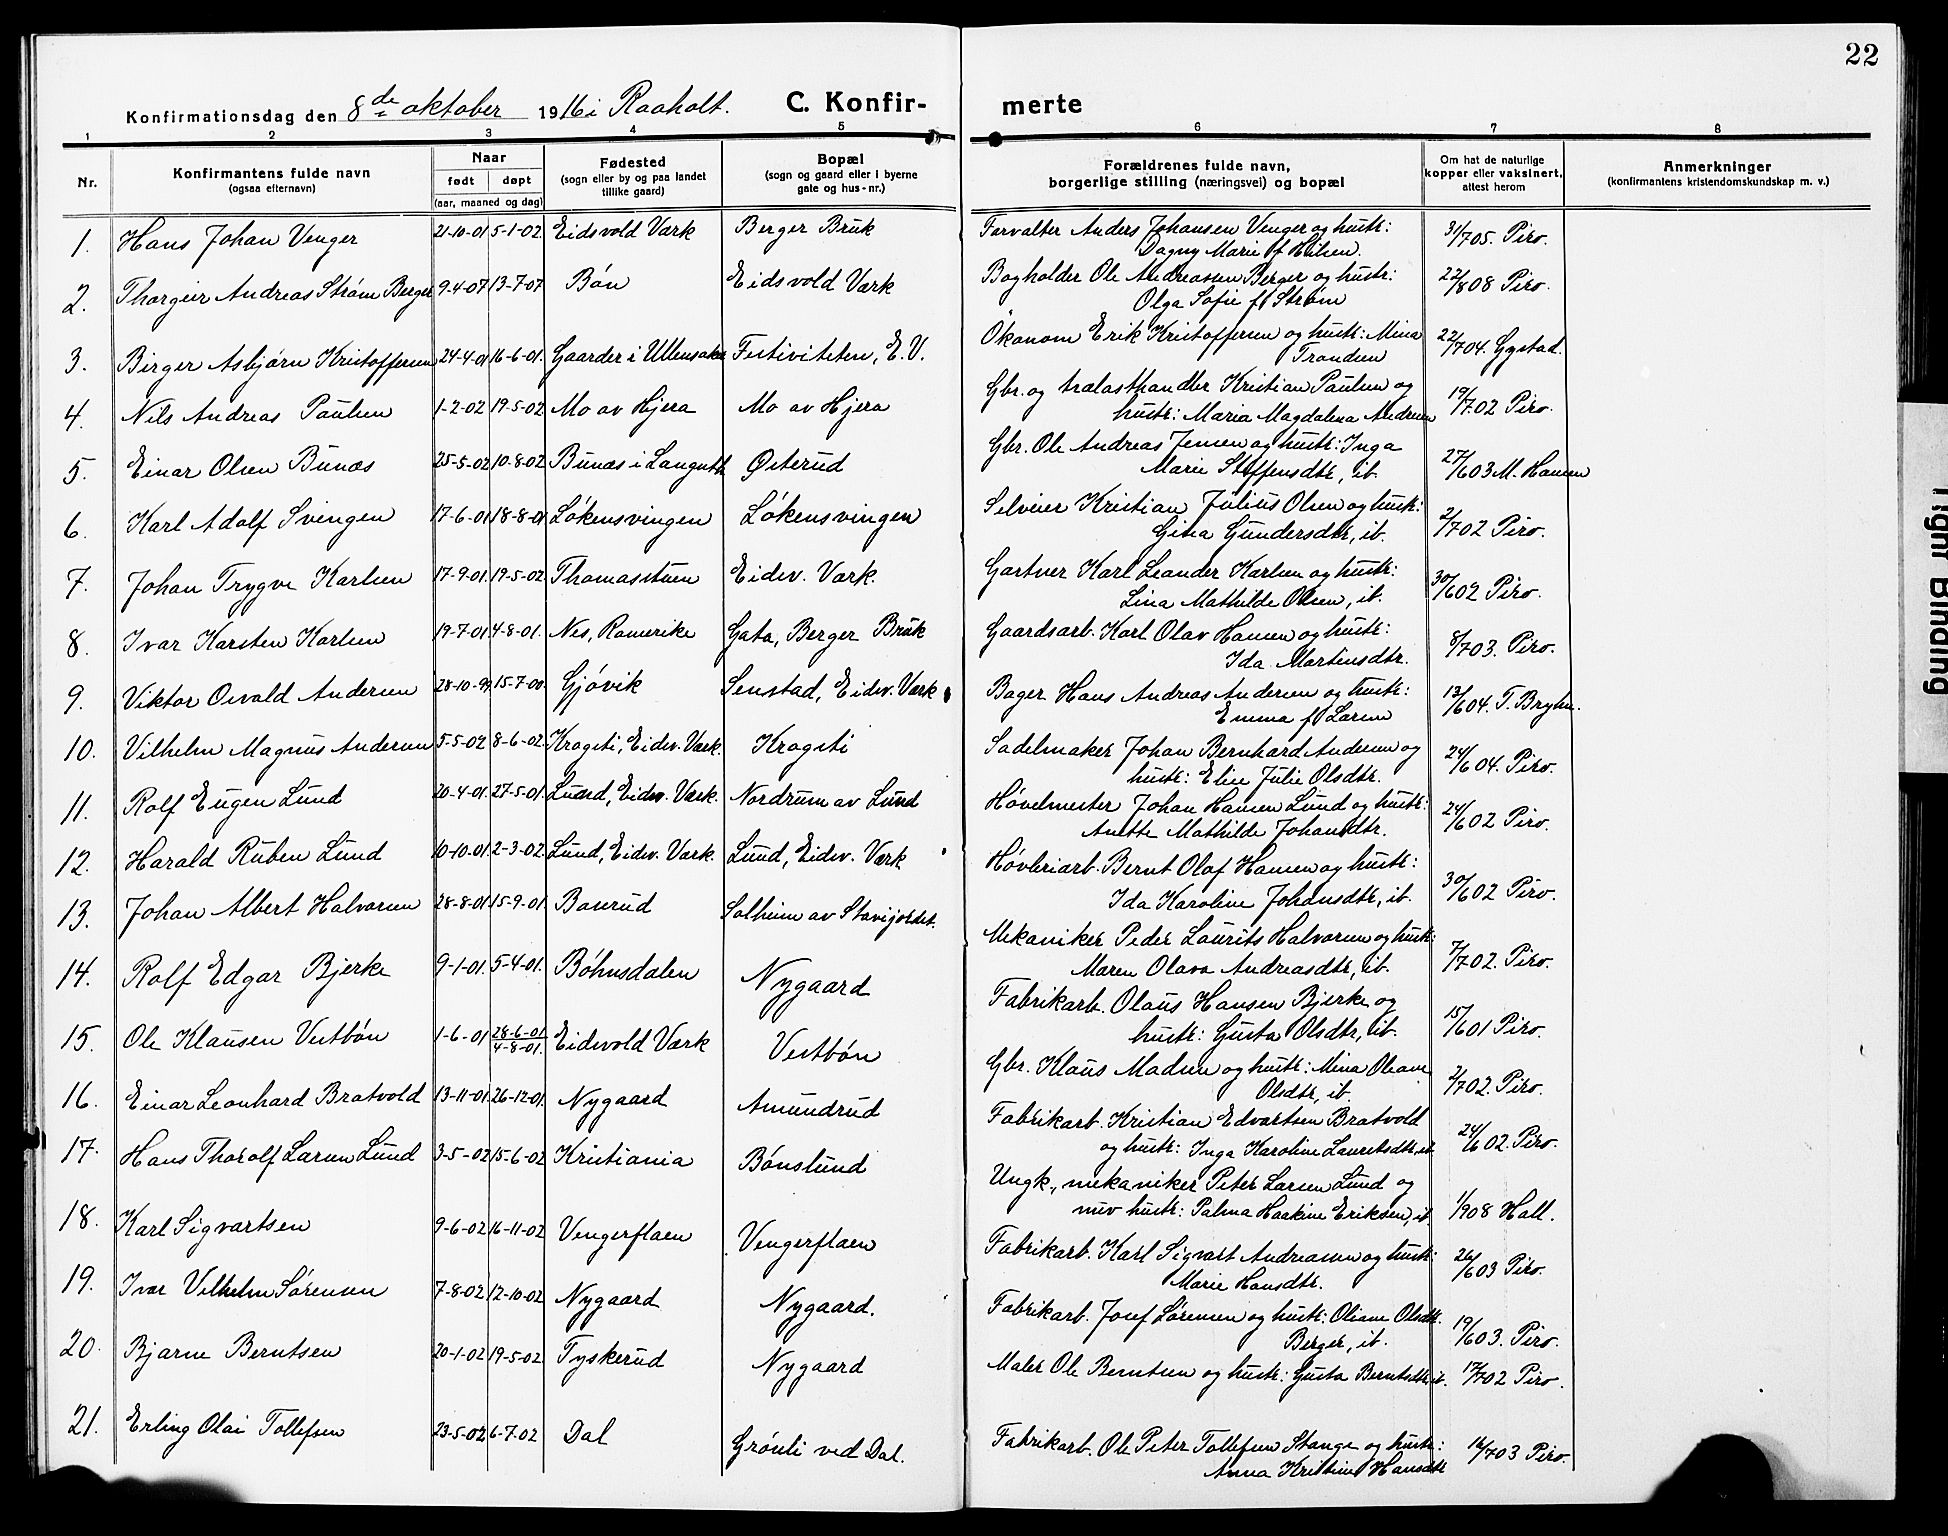 22
Konfirmationsdag den 8de oktober 1916 i Raaholt. C. Konfirmerte
1 2 3 4 5 6 7 8
Nr. Konfirmantens fulde navn (ogsaa efternavn) Naar født døpt (aar, maaned og dag) Fødested (sogn eller by og paa landet tillike gaard) Bopæl (sogn og gaard eller i byerne gate og hus-nr.) Forældrenes fulde navn, borgerlige stilling (næringsvei) og bopæl Om hat de naturlige kopper eller vaksinert, attest herom Anmerkninger (konfirmantens kristendomskundskap m. v.)
1. Hans Johan Venger 21-10-01 5-1-02 Eidsvold Værk Berger Bruk Forvalter Anders Johansen Venger og hustr: 31/7 05. Piro.
Dagny Marie f.
2. Thorgeir Andreas Strøm Berger 9-4-07 13-7-07 Bøn Eidsvold Værk Bogholder Ole Andreassen Berger og hustr: 22/8 08 Piro.
Olga Sofie f. Strøm
3. Birger Asbjørn Kristoffersen 24-4-01 16-6-01. Gaarder i Ullensaker Festiviteten, E.V. Økonom Erik Kristoffersen og hustr: Mina 22/7 04. Gystad.
Trondsen
4. Nils Andreas Paulsen 1-2-02 19-5-02 Mo av Hjera Mo av Hjera Gbr. og trælasthandler Kristian Paulsen og 19/7 02 Piro.
hustr: Maria Magdalena Andersen
5. Einar Olsen Bunæs 25-5-02 10-8-02 Bunæs i Langseth Østerud Gbr. Ole Andreas Jensen og hustr: Inga 27/6 03 M. Hansen
Marie Steffensdtr, ib.
6. Karl Adolf Svingen 17-6-01 18-8-01 Løkensvingen Løkensvingen Selveier Kristian Julius Olsen og hustr: 2/7 02 Piro.
Gina Gundersdtr, ib.
7. Johan Trygve Karlsen 17-9-01. 19-5-02 Thomasstuen Eidsv. Værk. Gartner Karl Leander Karlsen og hustr: 30/6 02 Piro.
Lina Mathilde Olsen, ib.
8. Ivar Karsten Karlsen 19-7-01 4-8-01. Nes, Romerike Gata, Berger Bruk Gaardsarb. Karl Olav Hansen og hustr: 8/7 03. Piro.
Ida Martinsdtr.
9. Viktor Osvald Andersen 28-10-99 15-7-00. Gjøvik Senstad, Eidsv. Værk Bager Hans Andreas Andersen og hustr: 13/6 04. T. Bryhn.
Emma f. Larsen
10. Vilhelm Magnus Andersen 5-5-02 8-6-02. Krogsti, Eidsv. Værk. Krogsti Sadelmaker Johan Bernhard Andersen og 24/6 04. Piro.
hustr: Elise Julie Olsdtr.
11. Rolf Eugen Lund 20-4-01. 27-5-01. Lund, Eidsv. Værk. Nordrum av Lund Høvelmester Johan Hansen Lund og hustr: 24/6 02 Piro.
Anette Mathilde Johansdtr.
12. Harald Ruben Lund 10-10-01. 2-3-02. Lund, Eidsv. Værk. Lund, Eidsv. Værk Høvleriarb. Bernt Olaf Hansen og hustr: 30/6 02 Piro.
Ida Karoline Johansdtr, ib.
13. Johan Albert Halvorsen 28-8-01 15-9-01 Baserud Solheim av Stavijordet. Mekaniker Peder Laurits Halvorsen og hustr: 7/7 02. Piro.
Maren Olava Andreasdtr, ib.
14. Rolf Edgar Bjerke 9-1-01. 5-4-01. Bøhnsdalen Nygaard Fabrikarb. Olaus Hansen Bjerke og 15/6 01 Piro.
hustr: Gusta Olsdtr, ib.
15. Ole Klausen Vestbøn 1-6-01 28-6-01 4-8-01. Eidsvold Værk Vestbøn Gbr. Klaus Madsen og hustr: Mina Oleane 2/7 02. Piro.
Olsdtr, ib.
16. Einar Leonhard Bratvold 13-11-01 26-12-01. Nygaard Amundrud Fabrikarb. Kristian Edvartsen Bratvold 24/6 02. Piro.
og hustr: Inga Karoline Lauritsdtr, ib
17. Hans Thorolf Larsen Lund 3-5-02 15-6-02 Kristiania Bønslund Ungk., mekaniker Peter Larsen Lund og 1/9 08 Hall.
nuv hustr: Palma Haakine Eriksen, ib.
18. Karl Sigvartsen 9-6-02 16-11-02 Vengerflaen Vengerflaen Fabrikarb. Karl Sigvart Andreassen og hustr: 26/6 03 Piro.
Marie Hansdtr.
19. Ivar Vilhelm Sørensen 7-8-02 12-10-02 Nygaard Nygaard. Fabrikarb. Josef Sørensen og hustr: Oliane Olsdtr. 19/6 03. Piro.
Berger, ib.
20. Bjarne Berntsen 20-1-02 19-5-02. Tyskerud Nygaard Maler Ole Berntsen og hustr: Gusta Berntsdtr, ib. 17/7 02 Piro.
21. Erling Olai Tollefsen 23-5-02 6-7-02 Dal Grønli ved Dal. Fabrikarb. Ole Peter Tollefsen Stange og hustr: 16/7 03 Piro.
Anna Kristine Hansdtr
Tight Binding